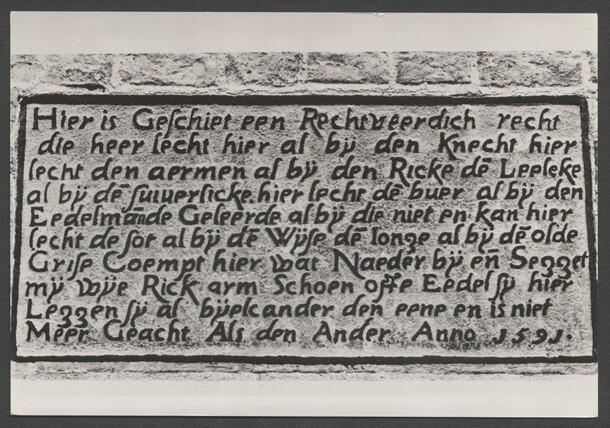 Hier is Geschiet een Rechtveerdich recht
die heer lecht hier al bÿ den Knecht hier
lecht den aermen al bÿ den Ricke dē Leeleke
al bÿ dē suiuerlicke hier lecht dē buer al bÿ den
Eedelman de Geleerde al bÿ die niet en kan hier
lecht de sot al bÿ dē Wÿse dē Ionge al bÿ dē olde
Grise Coempt hier wat Naeder bÿ en̄ Segget
mÿ wÿe Rick arm Schoen ofte Eedel sÿ hier
Leggen sÿ al bÿelcander den eene en is niet
Meer Geacht Als den Ander Anno 1591.